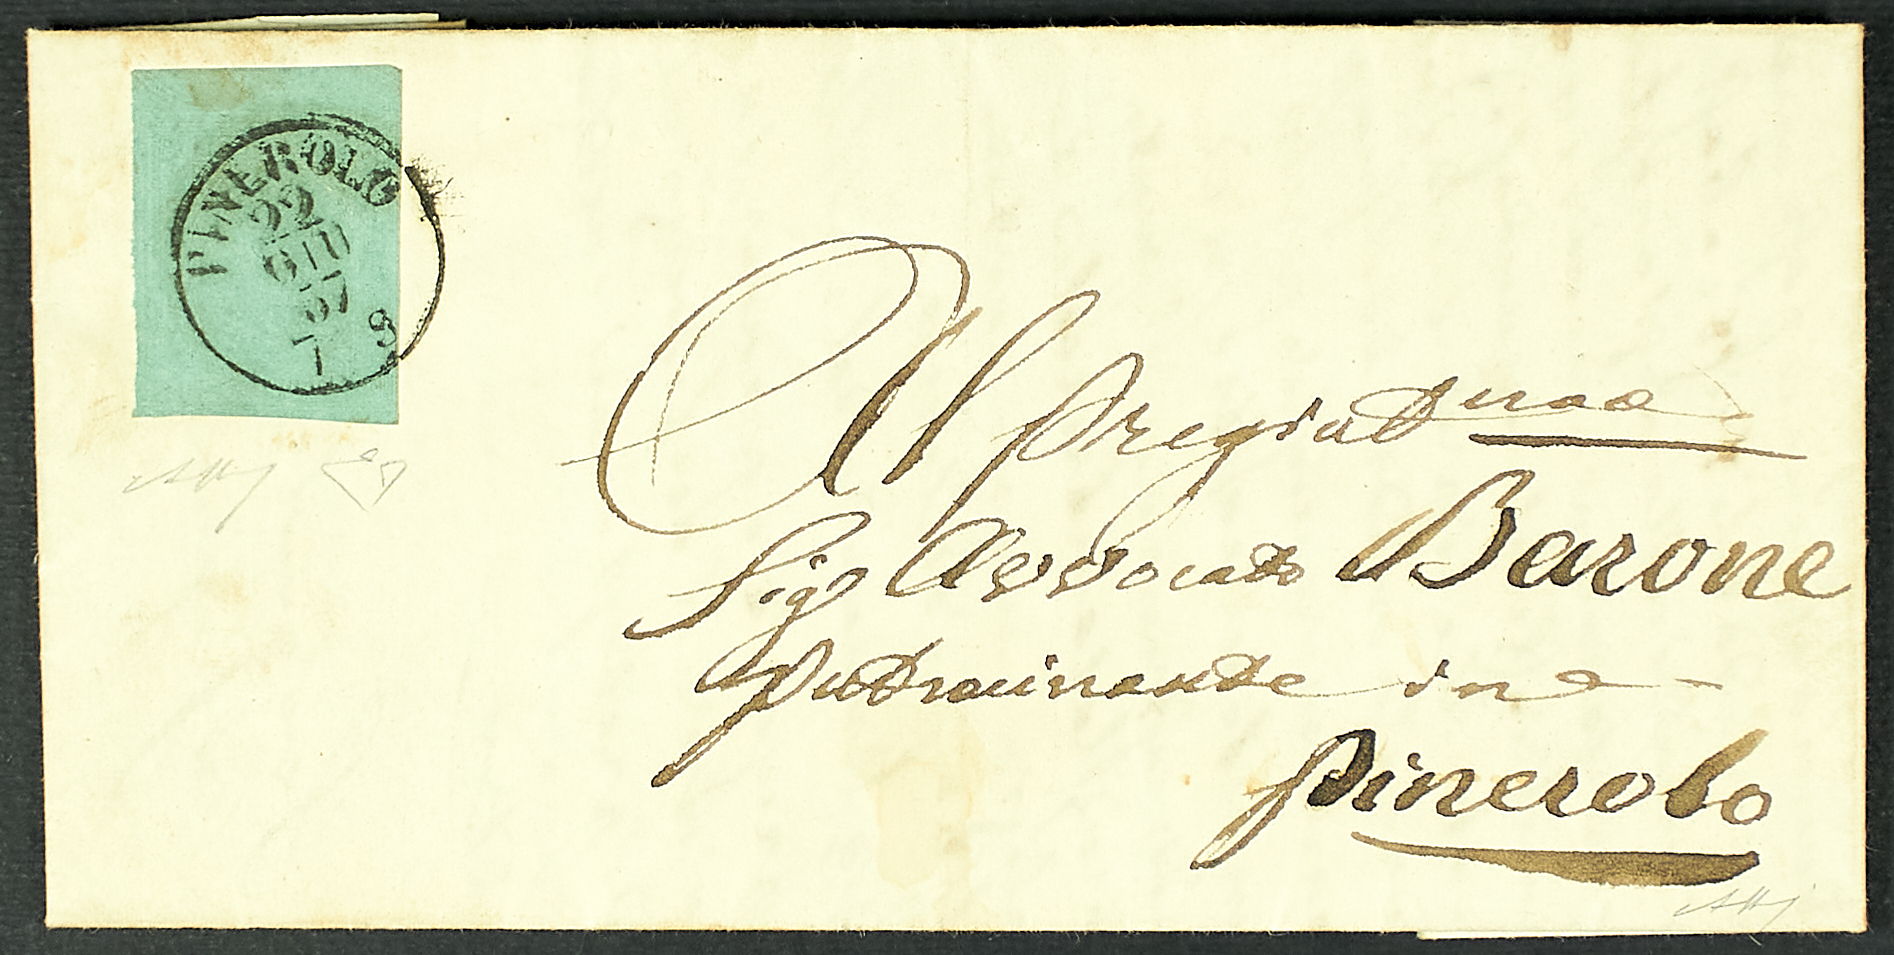 PINEROLO
22
GIU
57
7 S
Al Pregiat.mo
Sig.r Avvocato Barone
Patrocinante in
Pinerolo